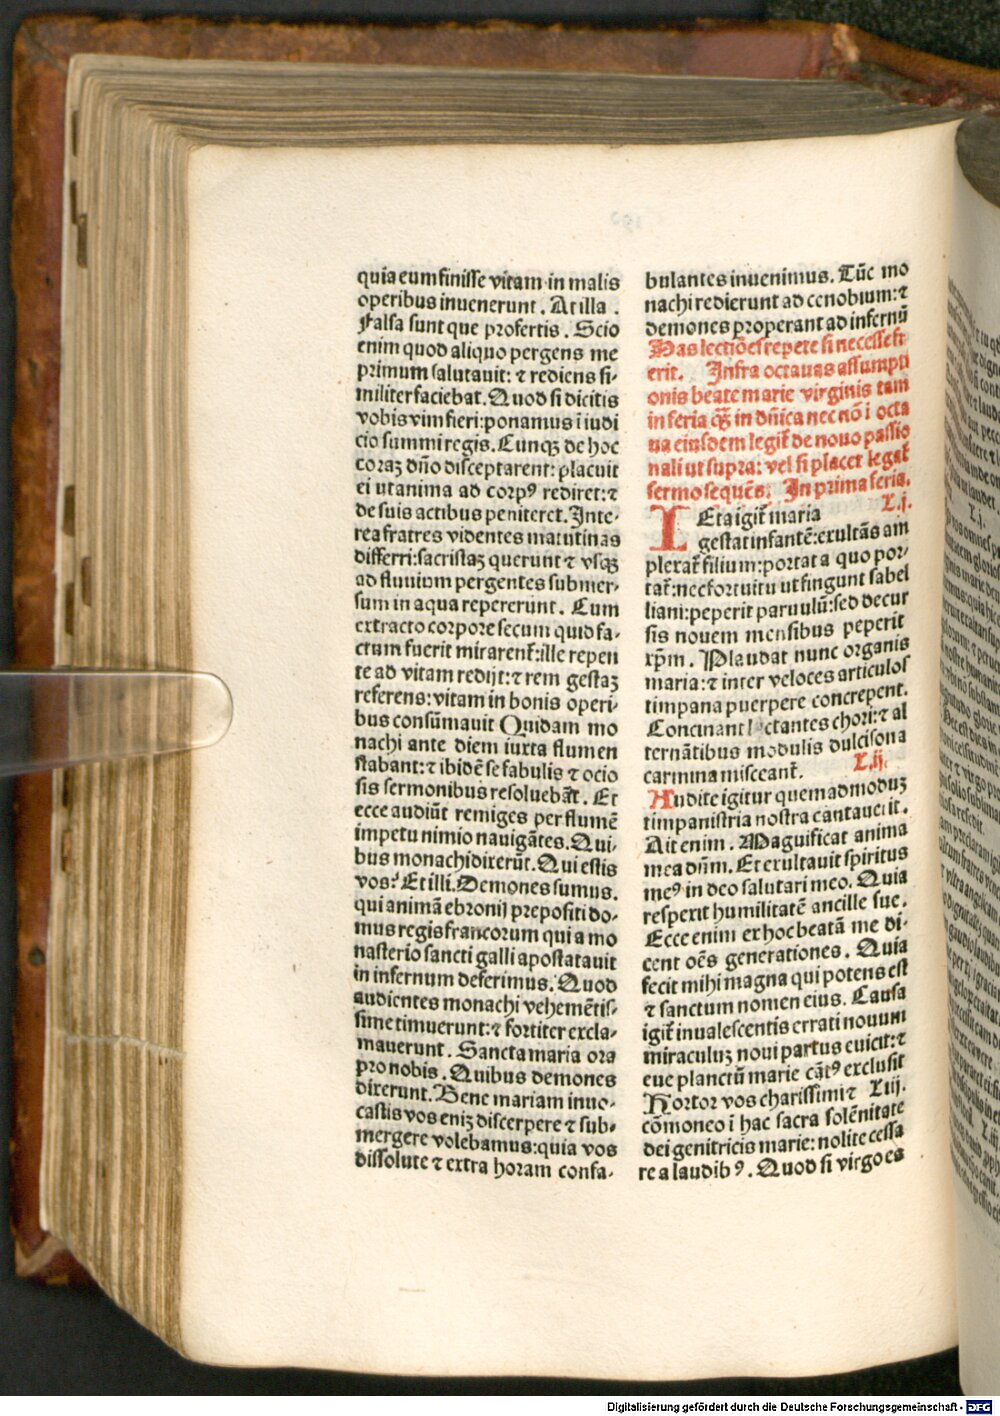 quia eum finisse vitam in malis
operibus invenerunt. At illa.
Falsa sunt que profertis. Scio
enim quod aliquo pergens me
primum salutauit: ⁊ rediens si-
militer faciebat. Quod si dicitis
vobis vim fieri: ponamus ī iudi
cio summi regis. Cunqꝫ de hoc
coraꝫ dn̄o disceptarent: placuit
ei ut anima ad corpꝰ rediret: ⁊
de suis actibus peniteret. Inte-
rea fratres videntes matutinas
differri: sacristaꝫ querunt ⁊ vsqꝫ
ad fluuium pergentes submer-
sum in aqua repererunt. Cum
extracto corpore secum quid fa-
ctum fuerit mirarent᷑: ille repen
te ad vitam redijt: ⁊ rem gestaꝫ
referens: vitam in bonis operi-
bus consūmauit Quidam mo
nachi ante diem iuxta flumen
stabant: ⁊ ibidē se fabulis ⁊ ocio
sis sermonibus resoluebāt. Et
ecce audiūt remiges per flumē
impetu nimio nauigātes. Qui-
bus monachi dixerūt. Qui estis
vos? Et illi. Demones sumus.
qui animā ebronij prepositi do-
mus regis francorum qui a mo
nasterio sancti galli apostatauit
in infernum deferimus. Quod
audientes monachi vehemētis-
sime timuerunt: ⁊ fortiter excla-
mauerunt. Sancta maria ora
pro nobis. Quibus demones
dixerunt. Bene mariam inuo-
castis vos eniꝫ discerpere ⁊ sub-
mergere volebamus: quia vos
dissolute ⁊ extra horam confa-
bulantes inuenimus. Tūc mo
nachi redierunt ad cenobium: ⁊
demones properant ad infernū
Has lectiōes repete si necesse f
erit. Infra octauas assumpti
onis beate marie virginis tam
in feria qꝫ in dn̄ica nec nō ī octa
ua eiusdem legit᷑ de nouo passio
nali ut supra: vel si placet legat᷑
sermo sequēs. In prima feria.
L.j.
Leta igit᷑ maria
gestat infantē: exultās am
plexat᷑ filium: portat a quo por-
tat᷑: nec fortuitu ut fingunt fabel
liani: peperit paruulū: sed decur
sis nouem mensibus peperit
xp̄m. Plaudat nunc organis
maria: ⁊ inter veloces articulos
timpana puerpere concrepent.
Concinant lectantes chori: ⁊ al
ternātibus modulis dulcisona
carmina misceant᷑. L.ij.
Audite igitur quemadmoduꝫ
timpanistria nostra cantauerit.
Ait enim. Magnificat anima
mea dn̄m. Et exultauit spiritus
meꝰ in deo salutari meo. Quia
respexit humilitatē ancille sue.
Ecce enim ex hoc beatā me di-
cent oēs generationes. Quia
fecit mihi magna qui potens est
⁊ sanctum nomen eius. Causa
igit᷑ inualescentis errati nouum
miraculuꝫ noui partus euicit: ⁊
eue planctū marie cātꝰ exclusit
Hortor vos charissimi ⁊ L iij.
cōmoneo ī hac sacra solēnitate
dei genitricis marie: nolite cessa
re a laudibꝰ. Quod si virgo es
Digitalisierung gefördert durch die Deutsche Forschungsgemeinschaft - DFG